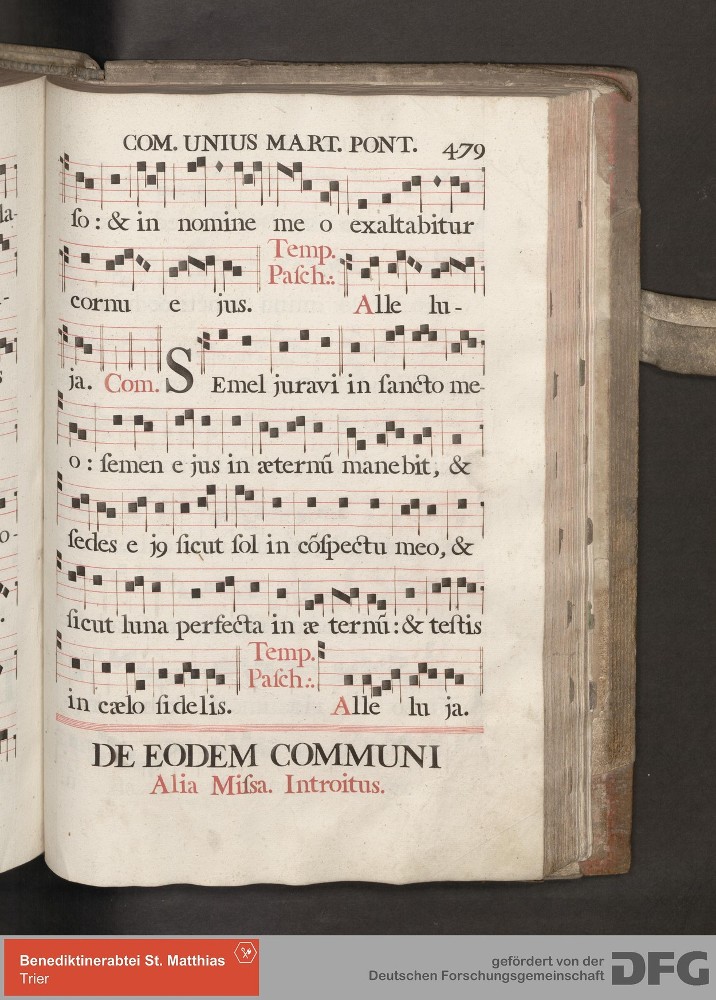 COM. UNIUS MART. PONT. 479
ſo : & in nomine me o exaltabitur
Temp.
Paſch.:
cornu e jus. Alle lu-
ja. Com. SEmel juravi in ſancto me-
o : ſemen e jus in æternũ manebit, &
ſedes e j9 ſicut ſol in cõſpectu meo, &
ſicut luna perfecta in æ ternũ : & teſtis
Temp.
Paſch.:
in cælo fidelis. Alle lu ja.
DE EODEM COMMUNI
Alia Miſſa. Introitus.
Benediktinerabtei St. Matthias
Trier
gefördert von der
Deutschen Forschungsgemeinschaft DFG